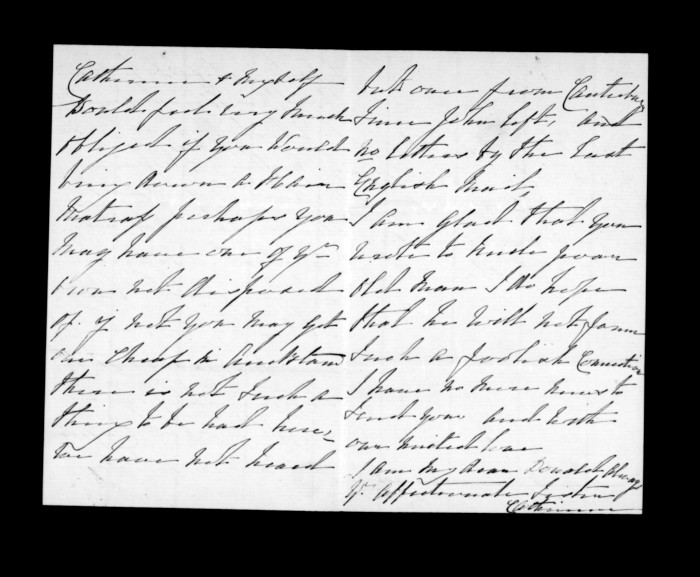 Catherine & myself
Would feel very much
obliged if you would
bring down a Hair
Matrass perhaps you
May have one of yr
own not disposed
of. if not you may get
one cheap in Auckland
there is not such a
thing to be had here,
We have not heard
but once from Canterbury
since John left, and
no letters by the last
English Mail,
I am glad that you
wrote to Uncle poor
old man I do hope
that he will not form
such a foolish Connection
I have no more news to
send you and with
our united love
I am my dear Donald Always
Yr affectionate Sister
Catherine